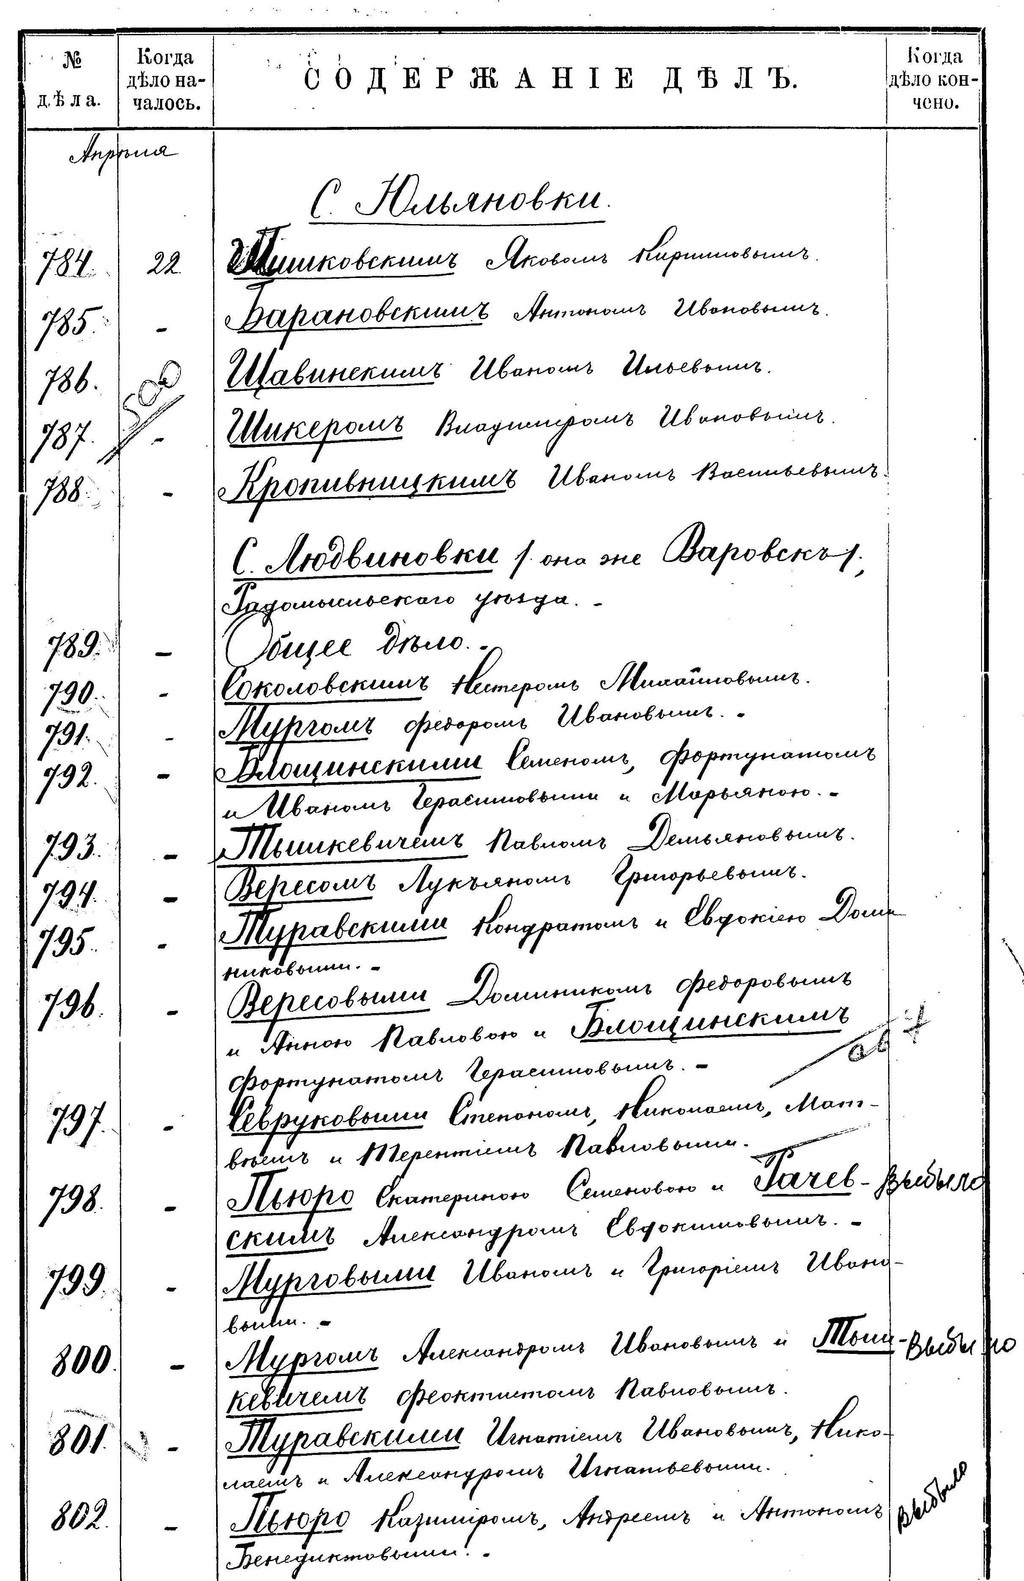 № дѣла.
Когда дѣло на-чалось.
СОДЕРЖАНІЕ ДѢЛЪ.
Когда дѣло кон-чено.
Апрѣля
С. Юльяновки.
784. 22 Пишковскимъ Яковомъ Кириловымъ.
785. - Барановскимъ Антономъ Ивановымъ.
786. Щавинскимъ Иваномъ Ильевымъ.
787. - Шикеромъ Владиміромъ Ивановымъ.
788. - Кропивницкимъ Иваномъ Васильевымъ.
С. Людвиновки /. она же Варовскъ /.,
Радомысльскаго уѣзда. -
789. - Общее дѣло. -
790. - Соколовскимъ Нестеромъ Михайловымъ.
791. - Мургомъ Федоромъ Ивановымъ. -
792. - Блощинскими Семеномъ, Фортунатомъ
и Иваномъ Герасимовыми и Марьяною. -
793. - Тышкевичемъ Павломъ Демьяновымъ.
794. - Вересомъ Лукъяномъ Григорьевымъ.
795. - Туравскими Кондратомъ и Евдокіею Доми
никовыми. -
796. - Вересовыми Доминикомъ Федоровымъ
и Анною Павловою и Блощинскимъ
Фортунатомъ Герасимовымъ. -
797. - Севруковыми Степаномъ, Николаемъ, Мат-
вѣемъ и Терентіемъ Павловыми. -
798. - Пьюро Екатериною Семеновою и Гачев- Выбыло
скимъ Александромъ Евдокимовымъ. -
799. - Мурговыми Иваномъ и Григоріемъ Ивано-
выми. -
800. - Мургомъ Александромъ Ивановымъ и Тыш- Выбыло
кевичемъ Феоктистомъ Павловымъ.
801. - Туравскими Игнатіемъ Ивановымъ, Нико-
лаемъ и Александромъ Игнатьевыми.
802. - Пьюро Казиміромъ, Андреемъ и Антономъ Выбыло
Бенедиктовыми. -